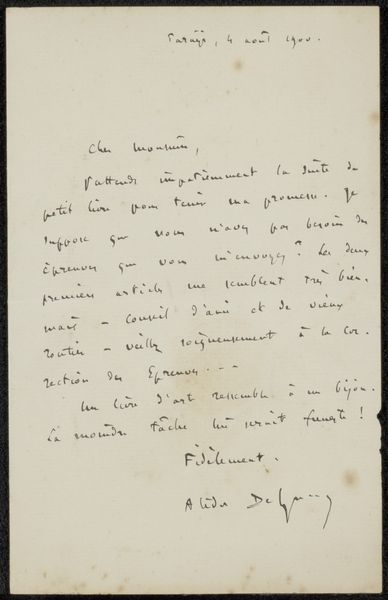 4 août 1900.
Cher Monsieur,
J'attends impatiemment la suite du
petit livre pour tenir ma promesse. Je
suppose que vous n'avez pas besoin des
épreuves que vous m'envoyez ? Les deux
premiers articles me semblent très bien.
mais – conseil d'ami et de vieux
routier – veillez soigneusement à la cor-
rection des épreuves. . . .
Un livre d'art ressemble à un bijou.
La moindre tâche lui serait funeste !
Fidèlement.